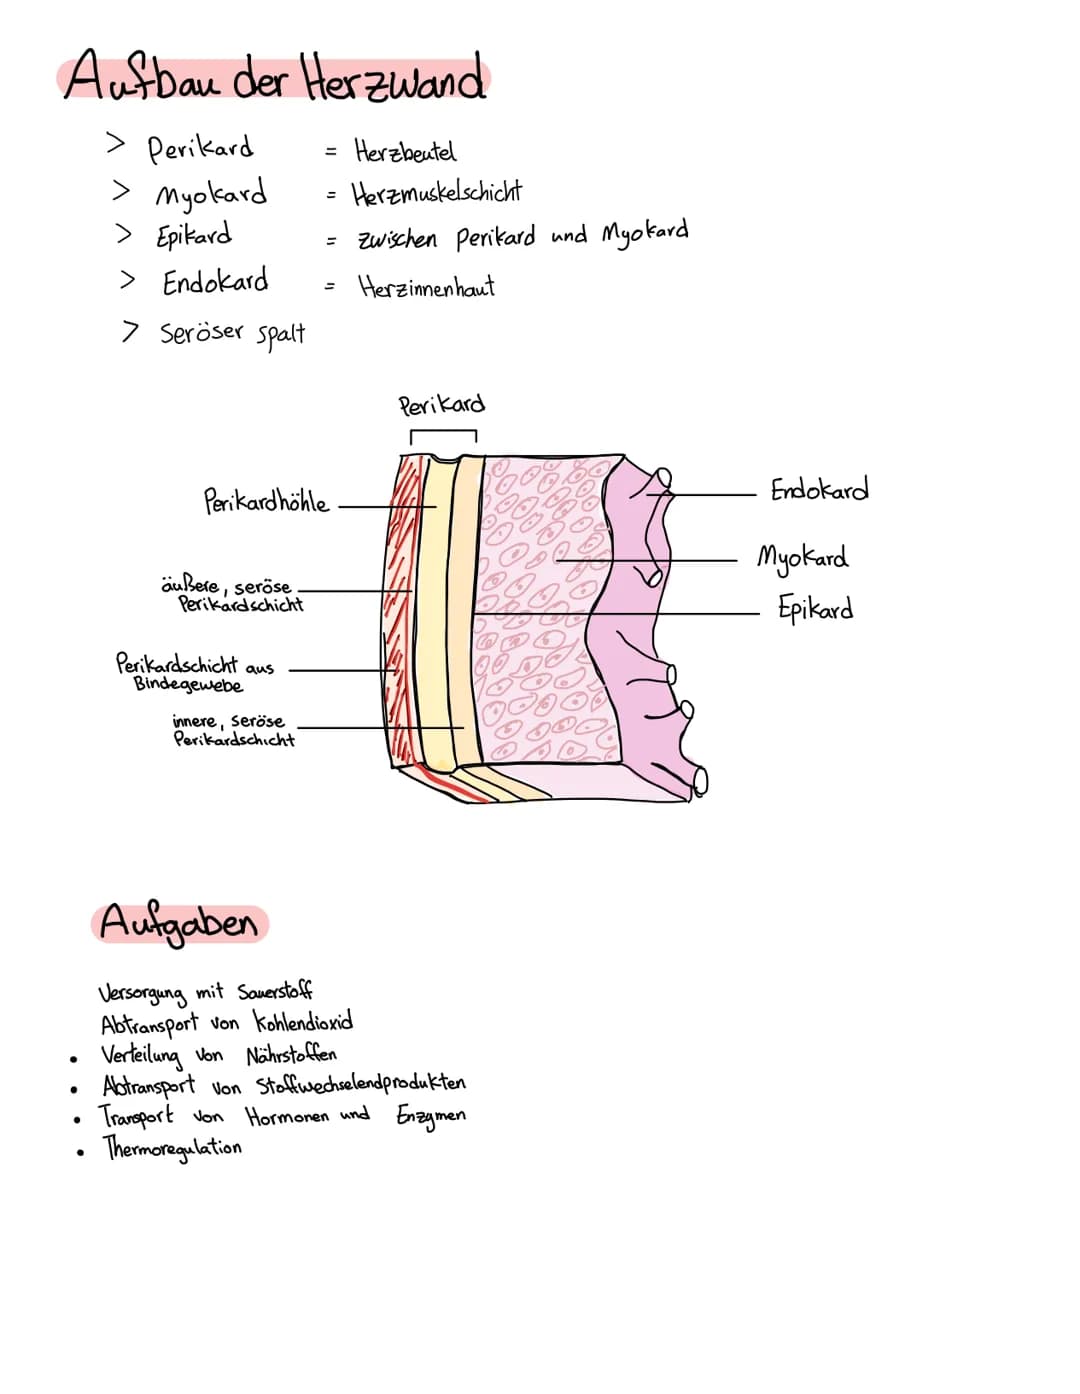 Aufbau der Herzwand
> Perikard = Herzbeutel
> Myokard = Herzmuskelschicht
> Epikard = zwischen Perikard und Myokard
> Endokard = Herzinnenhaut
> Seröser spalt
Perikard
Perikardhöhle
Endokard
Myokard
äußere, seröse
Perikardschicht
Epikard
Perikardschicht aus
Bindegewebe
innere, seröse
Perikardschicht
Aufgaben
Versorgung mit Sauerstoff
Abtransport von Kohlendioxid
• Verteilung von Nährstoffen
• Abtransport von Stoffwechselendprodukten
• Transport von Hormonen und Enzymen
• Thermoregulation